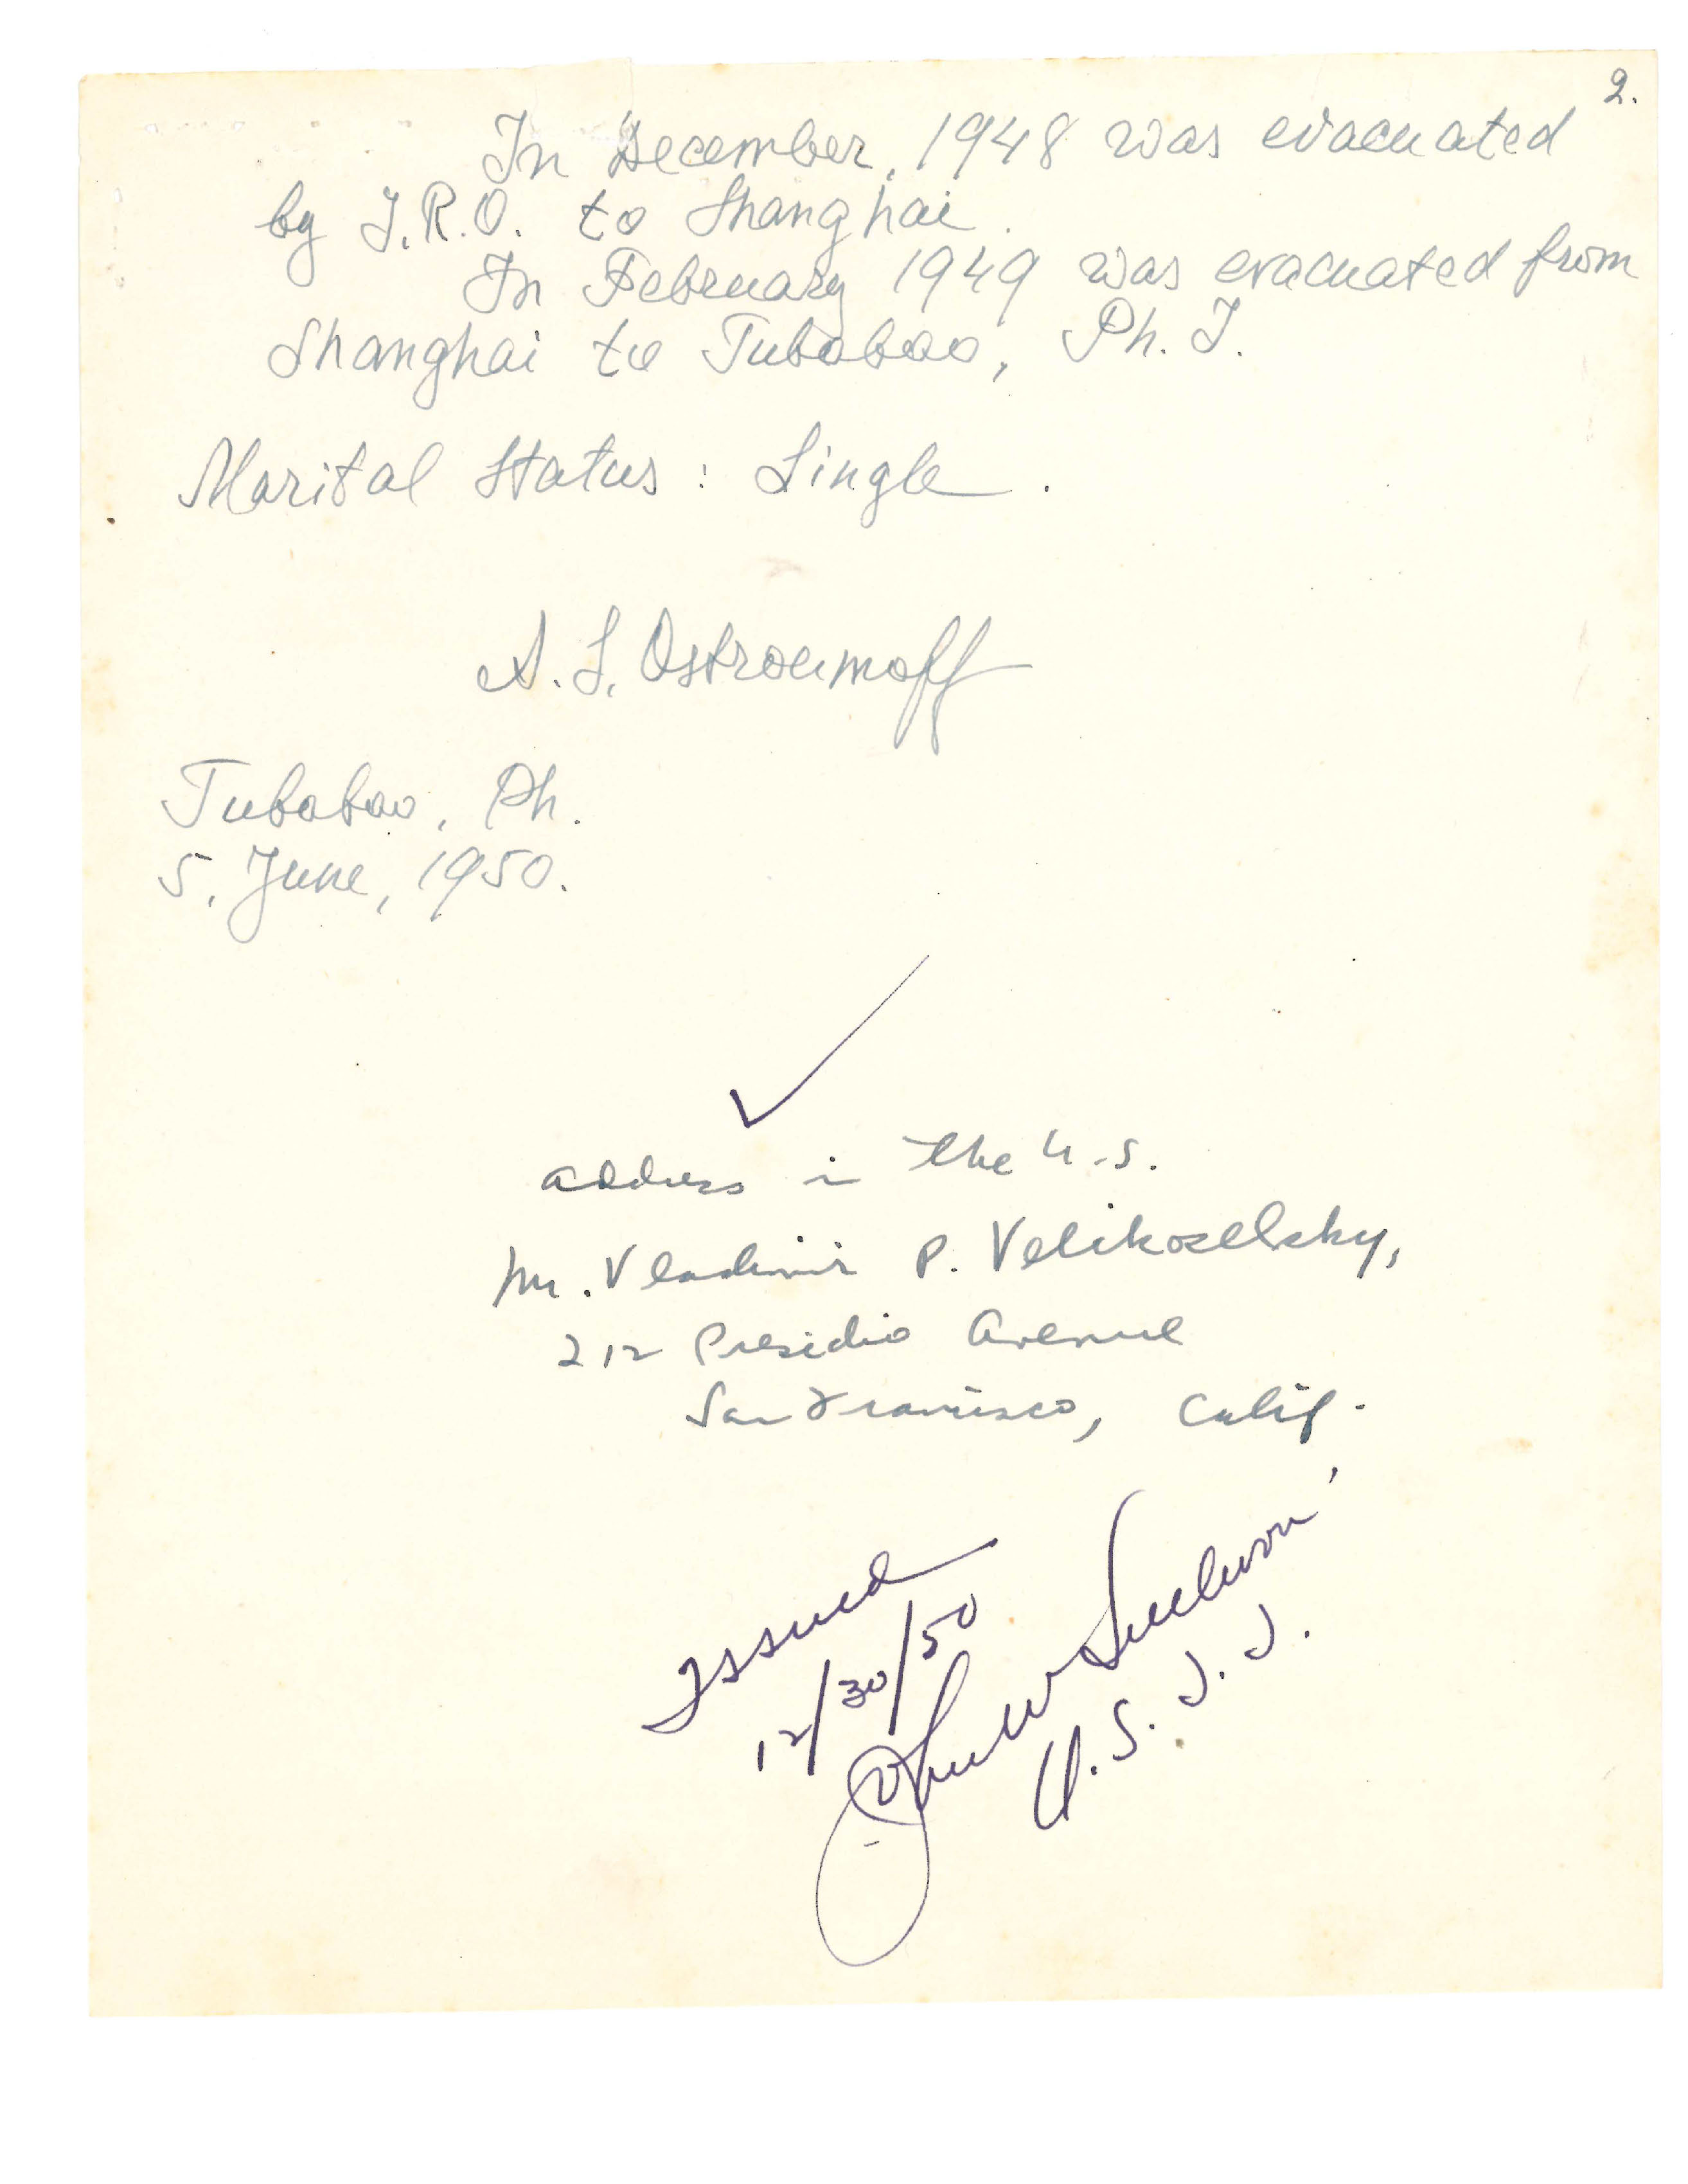 2.
In December, 1948 was evacuated
by I.R.O. to Shanghai.
In February 1949 was evacuated from
Shanghai to Tubabao, Ph. I.
Marital Status : Single.
A. S. Ostroumoff
Tubabao, Ph.
5, June, 1950.
address in the U.S.
Mr. Vladimir P. Velikoselsky,
212 Presidio Avenue
San Francisco, Calif.
Issued
12/30/50
John W
U.S.